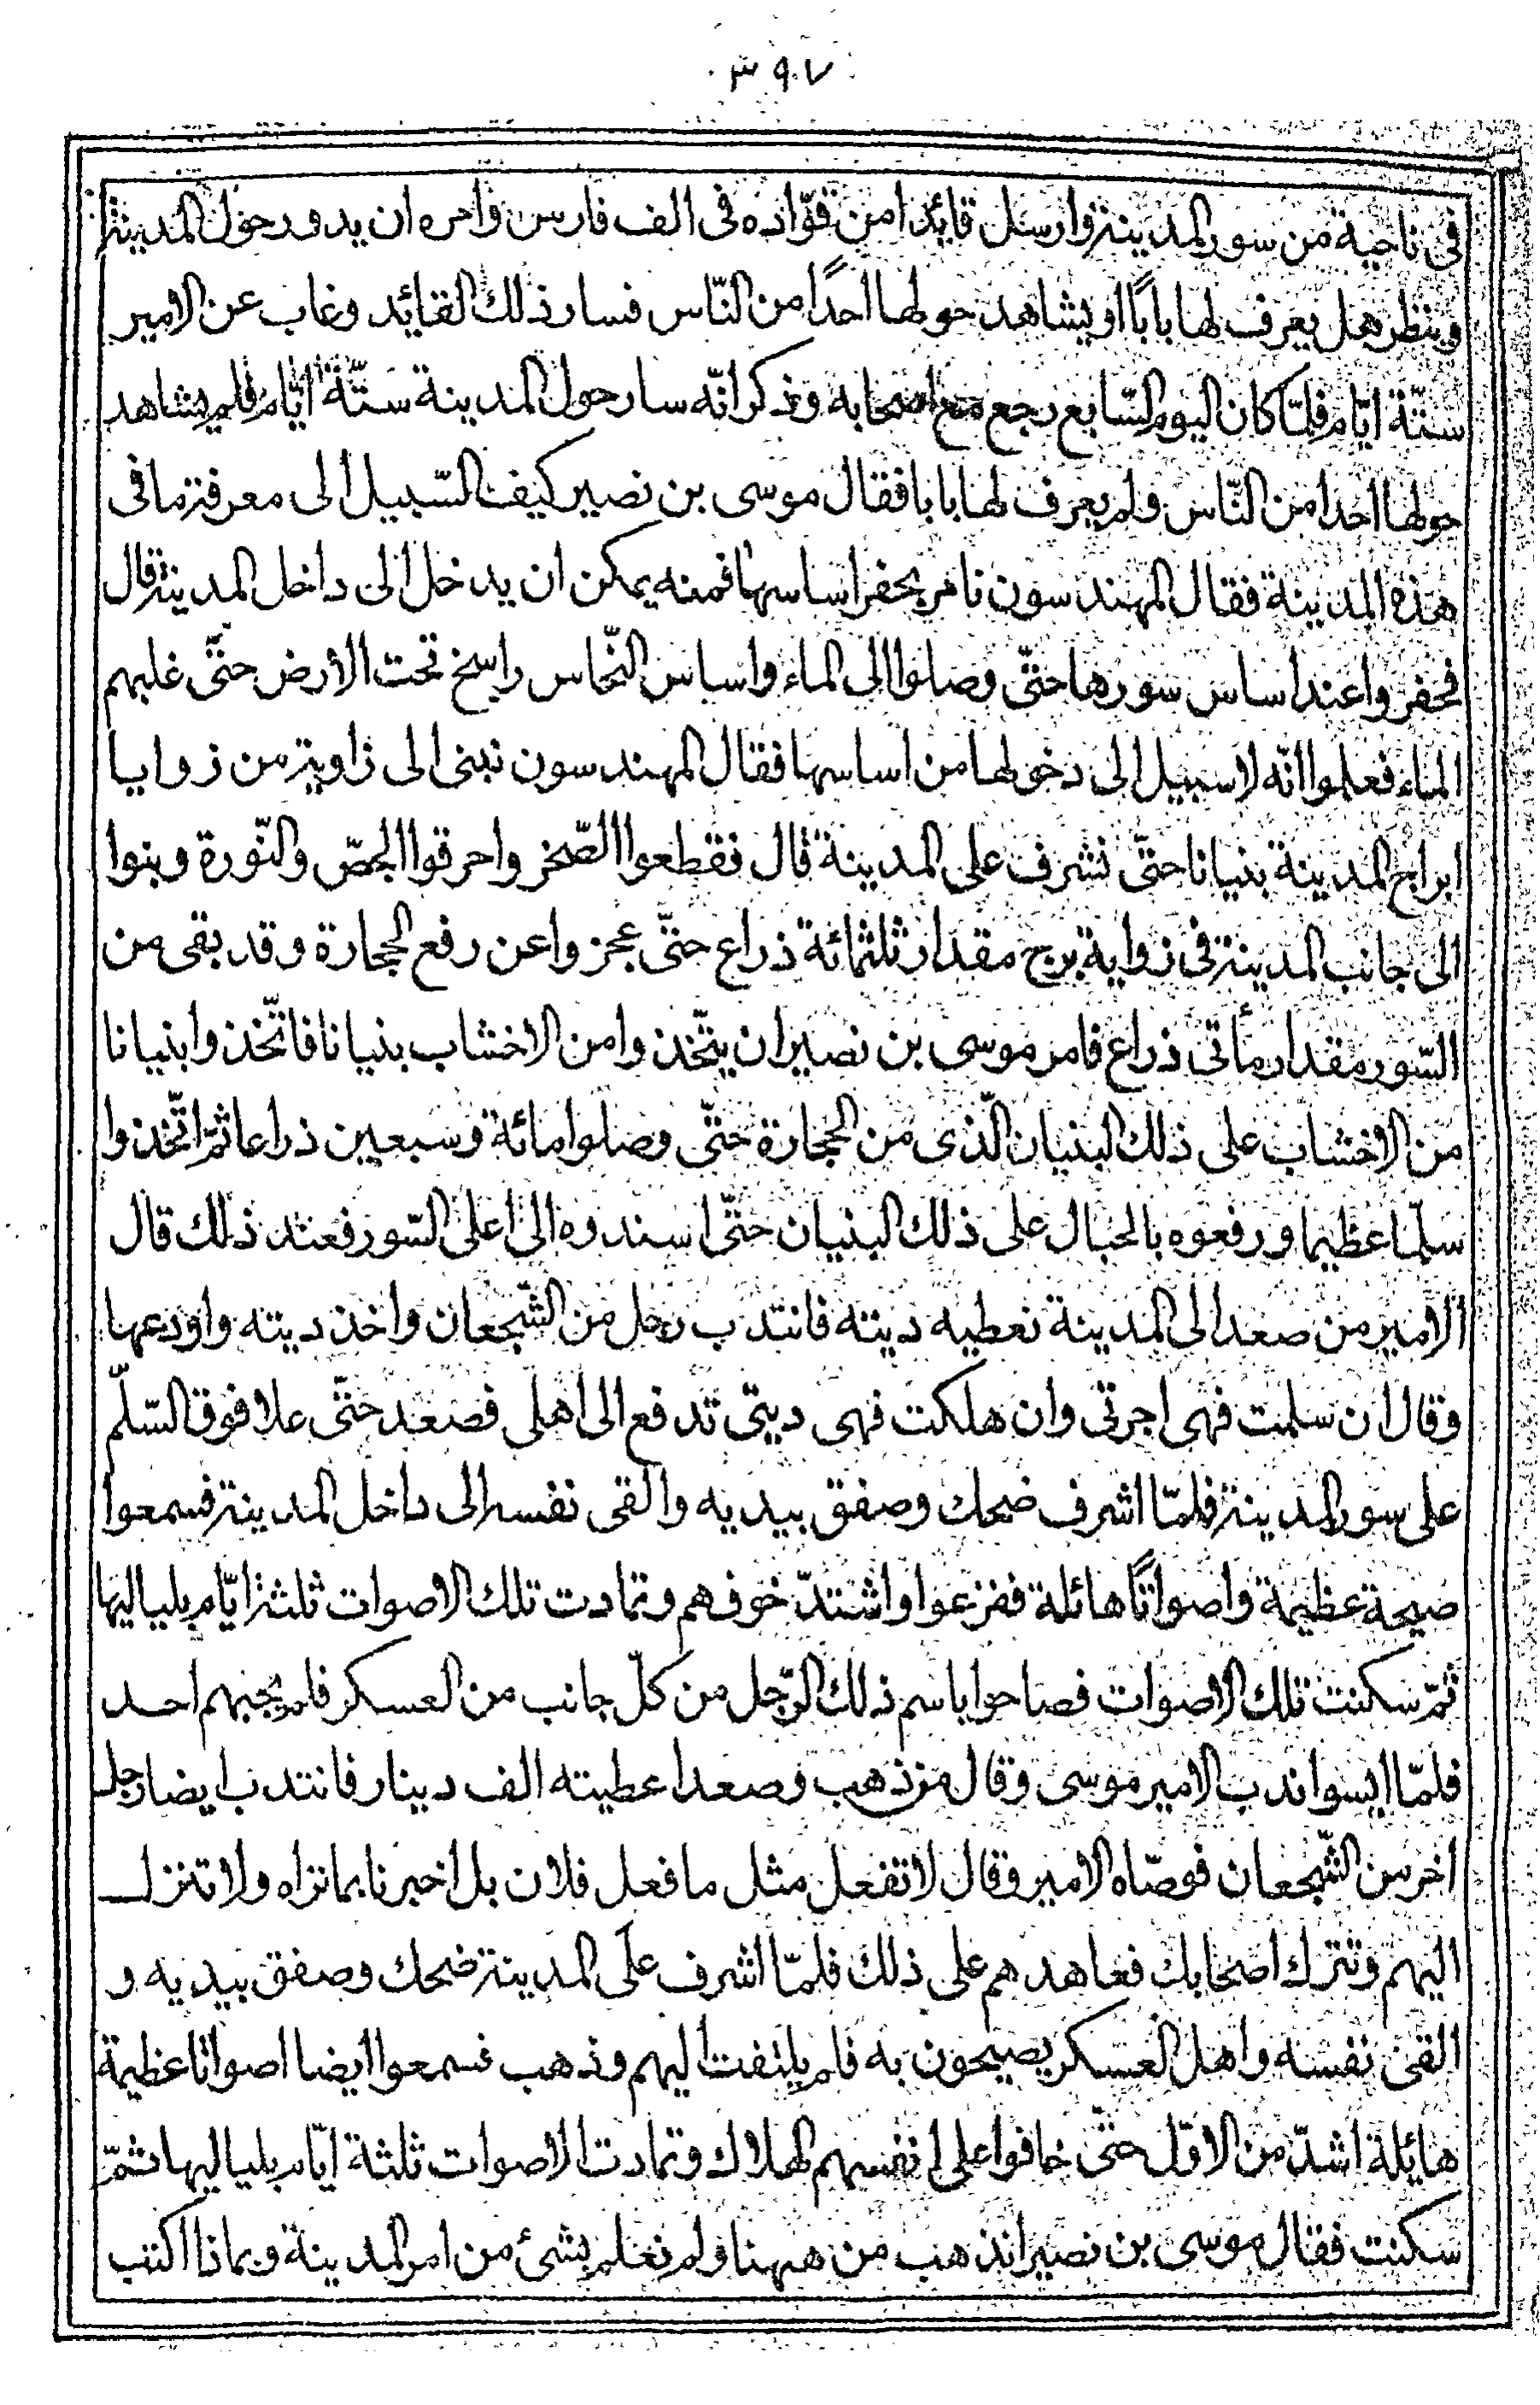 ٣٩٧
فى ناحية من سور المدينة وارسل قائدا من قوّاده فى الف فارس وامره ان يدور حول المدينة
وينظر هل يعرف لها بابًا او يشاهد حولها احدًا من النّاس فسار ذلك القائد وغاب عن الامير
ستّة ايّام فلمّا كان اليوم السّابع رجع مع اصحابه وذكر انّه سار حول المدينة ستّة ايّام فلم يشاهد
حولها احدا من النّاس ولم يعرف لها بابا فقال موسى بن نصير كيف السّبيل الى معرفة ما فى
هذه المدينة فقال المهندسون نامر بحفر اساسها فمنه يمكن ان يدخل الى داخل المدينة قال
فحفروا عند اساس سورها حتّى وصلوا الى الماء واساس النّحاس راسخ تحت الارض حتّى غلبهم
الماء فعلموا انّه لا سبيل الى دخولها من اساسها فقال المهندسون نبنى الى زاوية من زوايا
ابراج المدينة بنيانا حتّى نشرف على المدينة قال فقطعوا الصّخر واحرقوا الجصّ والنّورة وبنوا
الى جانب المدينة فى زواية برج مقدار ثلثمائة ذراع حتّى عجزوا عن رفع الحجارة وقد بقى من
السّور مقدار مأتى ذراع فامر موسى بن نصير ان يتّخذوا من الاخشاب بنيانا فاتّخذوا بنيانا
من الاخشاب على ذلك البنيان الّذى من الحجارة حتّى وصلوا مائة وسبعين ذراعا ثمّ اتّخذوا
سلّما عظيما ورفعوه بالحبال على ذلك البنيان حتّى اسندوه الى اعلى السّور فعند ذلك قال
الامير من صعد الى المدينة نعطيه ديته فانتدب رجل من الشّجعان واخذ ديته واودعها
وقال ان سلمت فهى اجرتى وان هلكت فهى ديتى تدفع الى اهلى فصعد حتّى علا فوق السّلّم
على سور المدينة فلمّا اشرف ضحك وصفق بيديه والقى نفسه الى داخل المدينة فسمعوا
صيحة عظيمة واصواتًا هائلة ففزعوا واشتدّ خوفهم وتمادت تلك الاصوات ثلثة ايّام بلياليها
ثمّ سكنت تلك الاصوات فصاحوا باسم ذلك الرّجل من كلّ جانب من العسكر فلم يجبهم احد
فلمّا ايسوا ندب الامير موسى وقال من ذهب وصعد اعطيته الف دينار فانتدب ايضا رجل
اخر من الشّجعان فوصّاه الامير وقال لا تفعل مثل ما فعل فلان بل اخبرنا بما تراه ولا تنزل
اليهم وتترك اصحابك فعاهدهم على ذلك فلمّا اشرف على المدينة ضحك وصفق بيديه و
القى نفسه واهل العسكر يصيحون به فلم يلتفت اليهم وذهب فسمعوا ايضا اصواتا عظيمة
هايلة اشدّ من الاوّل حتّى خافوا على انفسهم الهلاك وتمادت الاصوات ثلثة ايّام بلياليها ثمّ
سكنت فقال موسى بن نصير انذهب من ههنا ولم نعلم بشئ من امر المدينة وبماذا اكتب